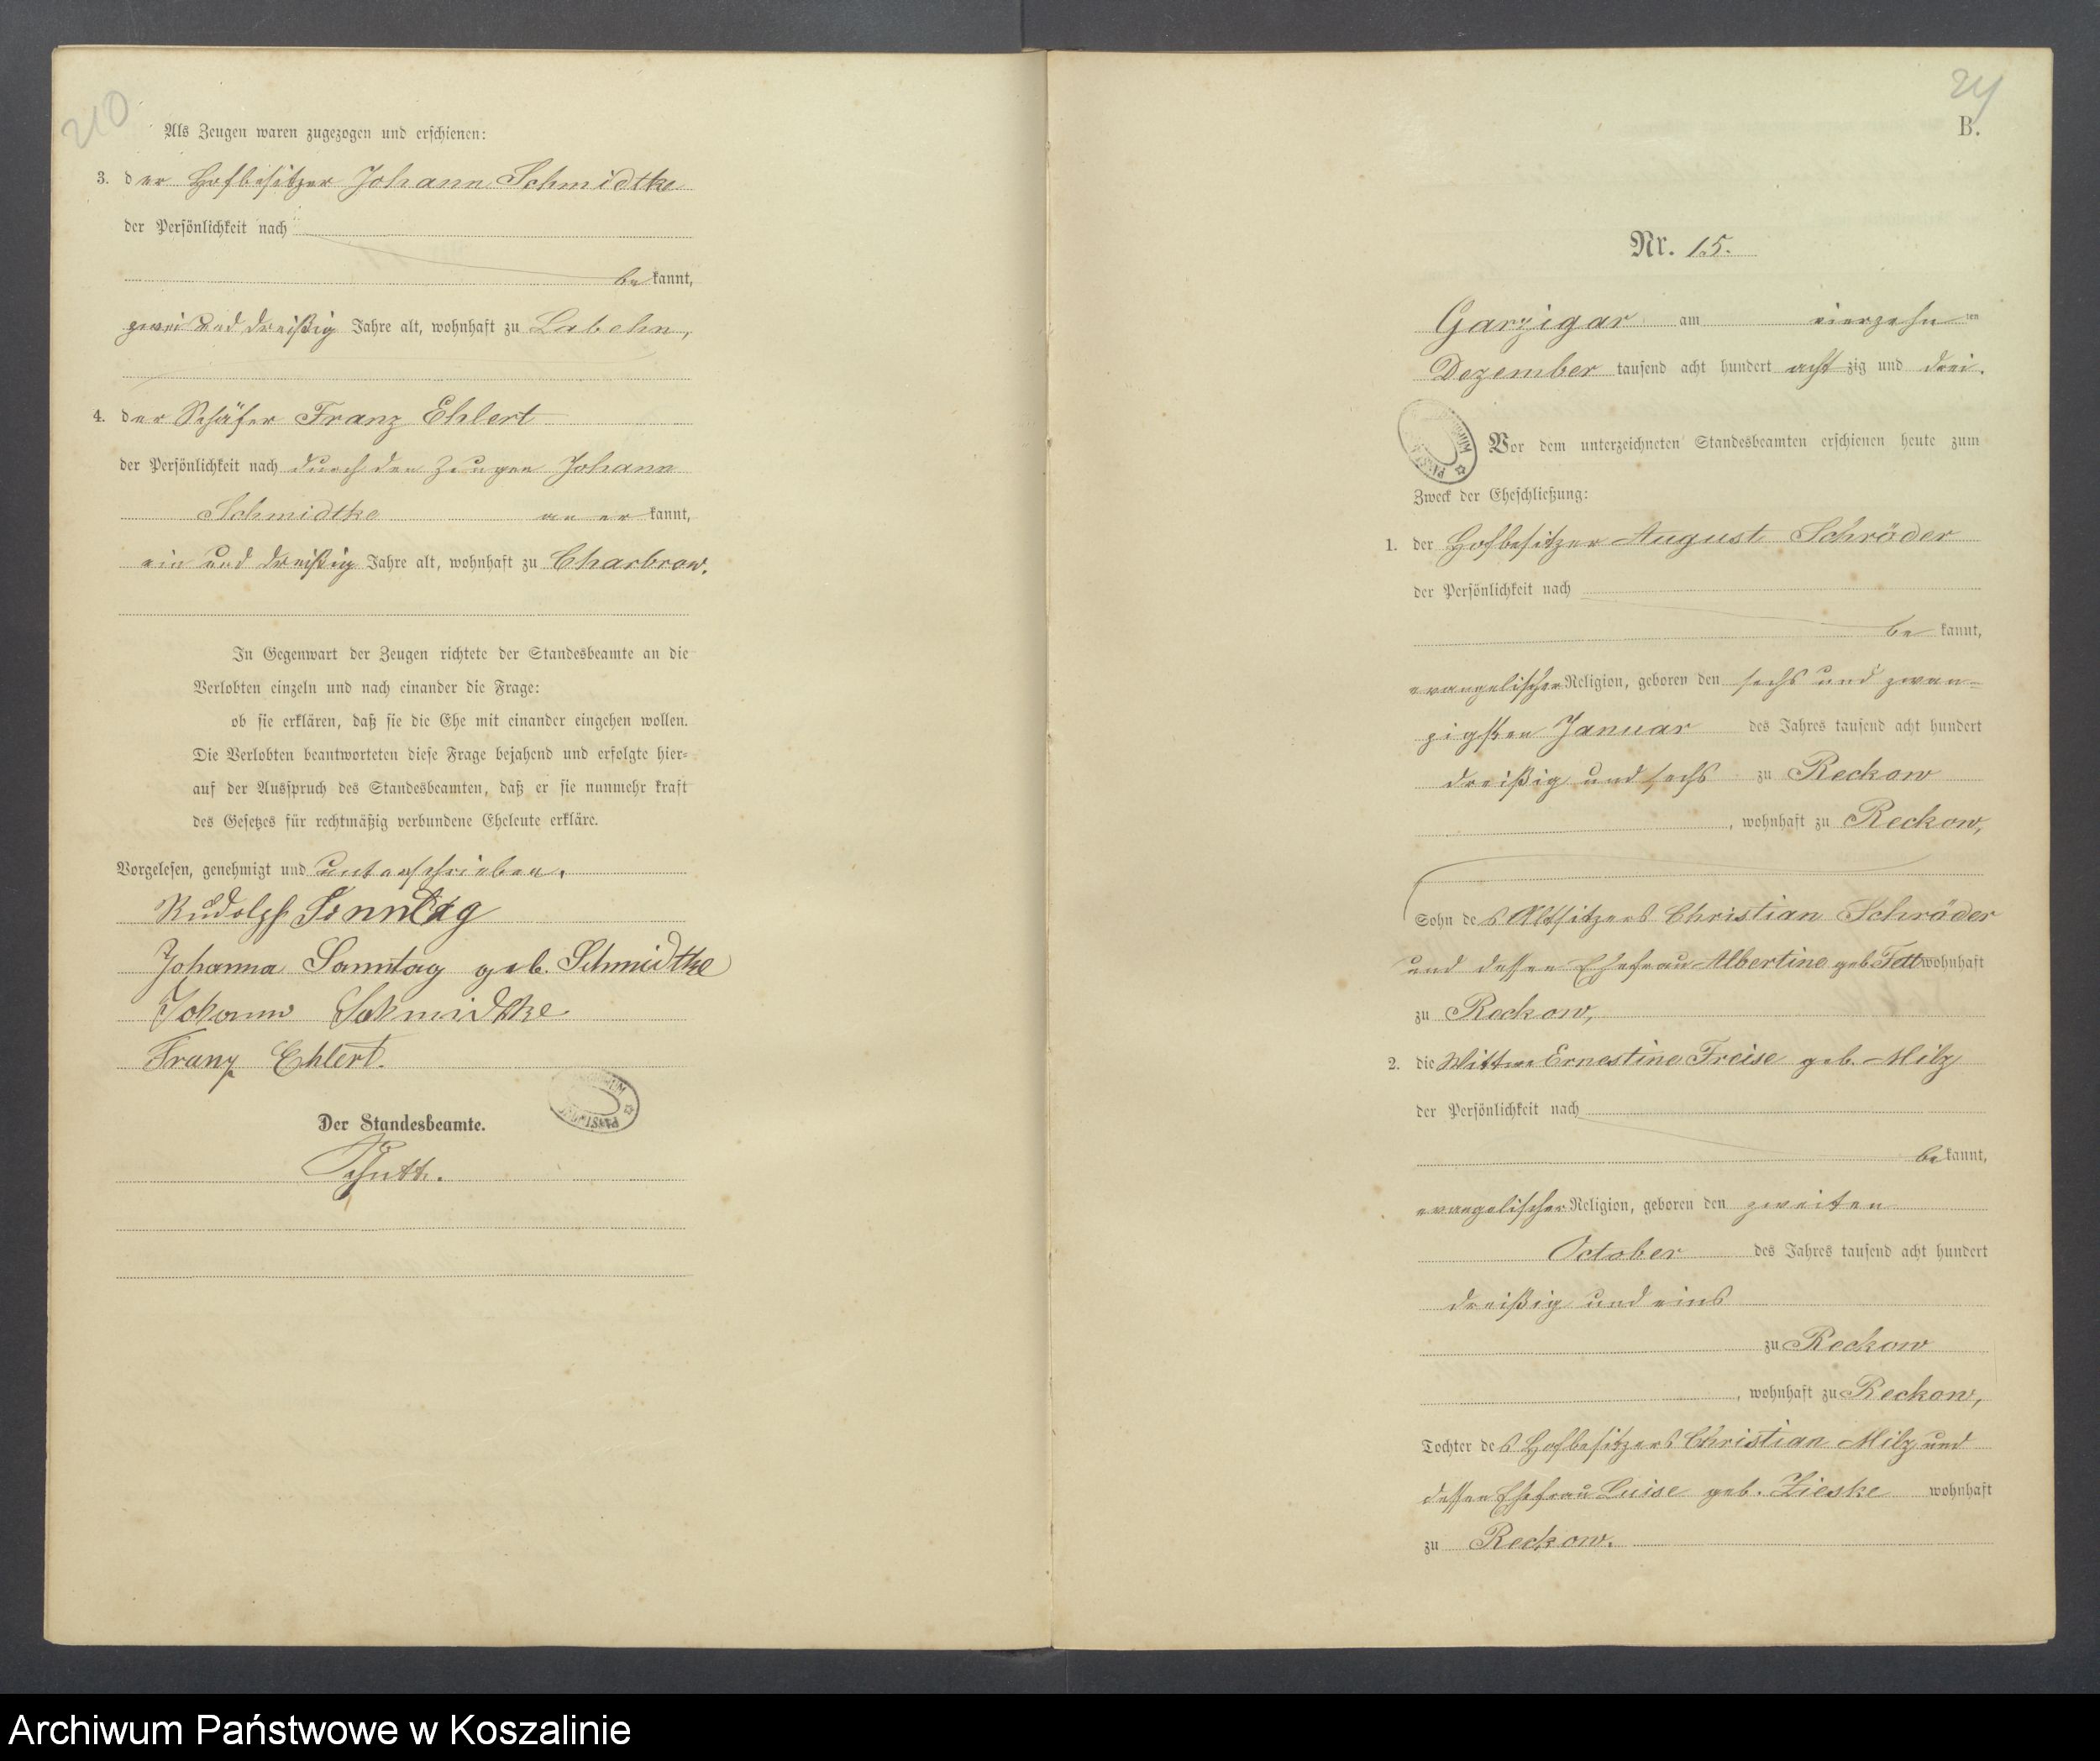 210
Als Zeugen waren zugezogen und erschienen:
3. der Hofbesitzer Johann Schmidtke
der Persönlichkeit nach
bekannt,
zwei und dreißig Jahre alt, wohnhaft zu Labehn,
4. der Schäfer Franz Ehlert
der Persönlichkeit nach durch den Zeugen Johann
Schmidtke anerkannt,
ein und dreißig Jahre alt, wohnhaft zu Charbrow.
In Gegenwart der Zeugen richtete der Standesbeamte an die
Verlobten einzeln und nach einander die Frage:
ob sie erklären, daß sie die Ehe mit einander eingehen wollen.
Die Verlobten beantworteten diese Frage bejahend und erfolgte hier-
auf der Ausspruch des Standesbeamten, daß er sie nunmehr kraft
des Gesetzes für rechtmäßig verbundene Eheleute erkläre.
Vorgelesen, genehmigt und unterschrieben.
Rudolph Sonntag
Johanna Sonntag geb. Schmidtke
Johann Schmidtke
Franz Ehlert.
Der Standesbeamte.
B.
Nr. 15.
Garzigar am vierzehnten
Dezember tausend acht hundert achtzig und drei.
Vor dem unterzeichneten Standesbeamten erschienen heute zum
Zweck der Eheschließung:
1. der Hofbesitzer August Schröder
der Persönlichkeit nach
bekannt,
evangelischer Religion, geboren den sechs und zwan-
zigsten Januar des Jahres tausend acht hundert
dreißig und sechs zu Reckow
, wohnhaft zu Reckow,
Sohn des Altsitzers Christian Schröder
und dessen Ehefrau Albertine geb. Tett wohnhaft
zu Reckow,
2. die Wittwe Ernestine Freise geb. Milz
der Persönlichkeit nach
bekannt,
evangelischer Religion, geboren den zweiten
October des Jahres tausend acht hundert
dreißig und eins
zu Reckow
, wohnhaft zu Reckow,
Tochter des Hofbesitzers Christian Milz und
dessen Ehefrau Luise geb. Zieske wohnhaft
zu Reckow.
Archiwum Państwowe w Koszalinie